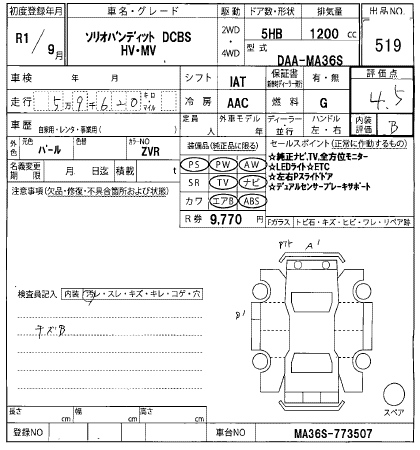 初度登録年月 車名・グレード 駆動 ドア数・形状 排気量 出品NO.
R1/9月 ソリオバンディット DCBS HV・MV 2WD・4WD 5HB 1200cc 519
型式 DAA-MA36S
車検 年 月 シフト IAT 保証書 有・無 評価点 4.5
走行 5万9千620 キロ マイル 冷房 AAC 燃料 G
車歴 自家用・レンタ・事業用( ) 定員 人 外車モデル 年 ディーラー・並行 ハンドル 左・右 内装評価 B
外色 元色 パール 色替 カラーNO ZVR
装備品(純正品に限る) セールスポイント(正常に作動するもの)
名義変更期限 月 日迄 積載 t
PS PW AW ☆純正ナビ,TV,全方位モニター
☆LEDライト☆ETC
注意事項(欠品・修復・不具合箇所および状態) SR TV ナビ ☆左右Pスライドドア
☆デュアルセンサーブレーキサポート
カワ エアB ABS
R券 9,770円 Fガラス トビ石・キズ・ヒビ・ワレ・リペア跡
A1
B1
検査員記入 内装 汚レ・スレ・キズ・キレ・コゲ・穴
キズB
スペア
長さ cm 幅 cm 高さ cm
登録NO 車台NO MA36S-773507